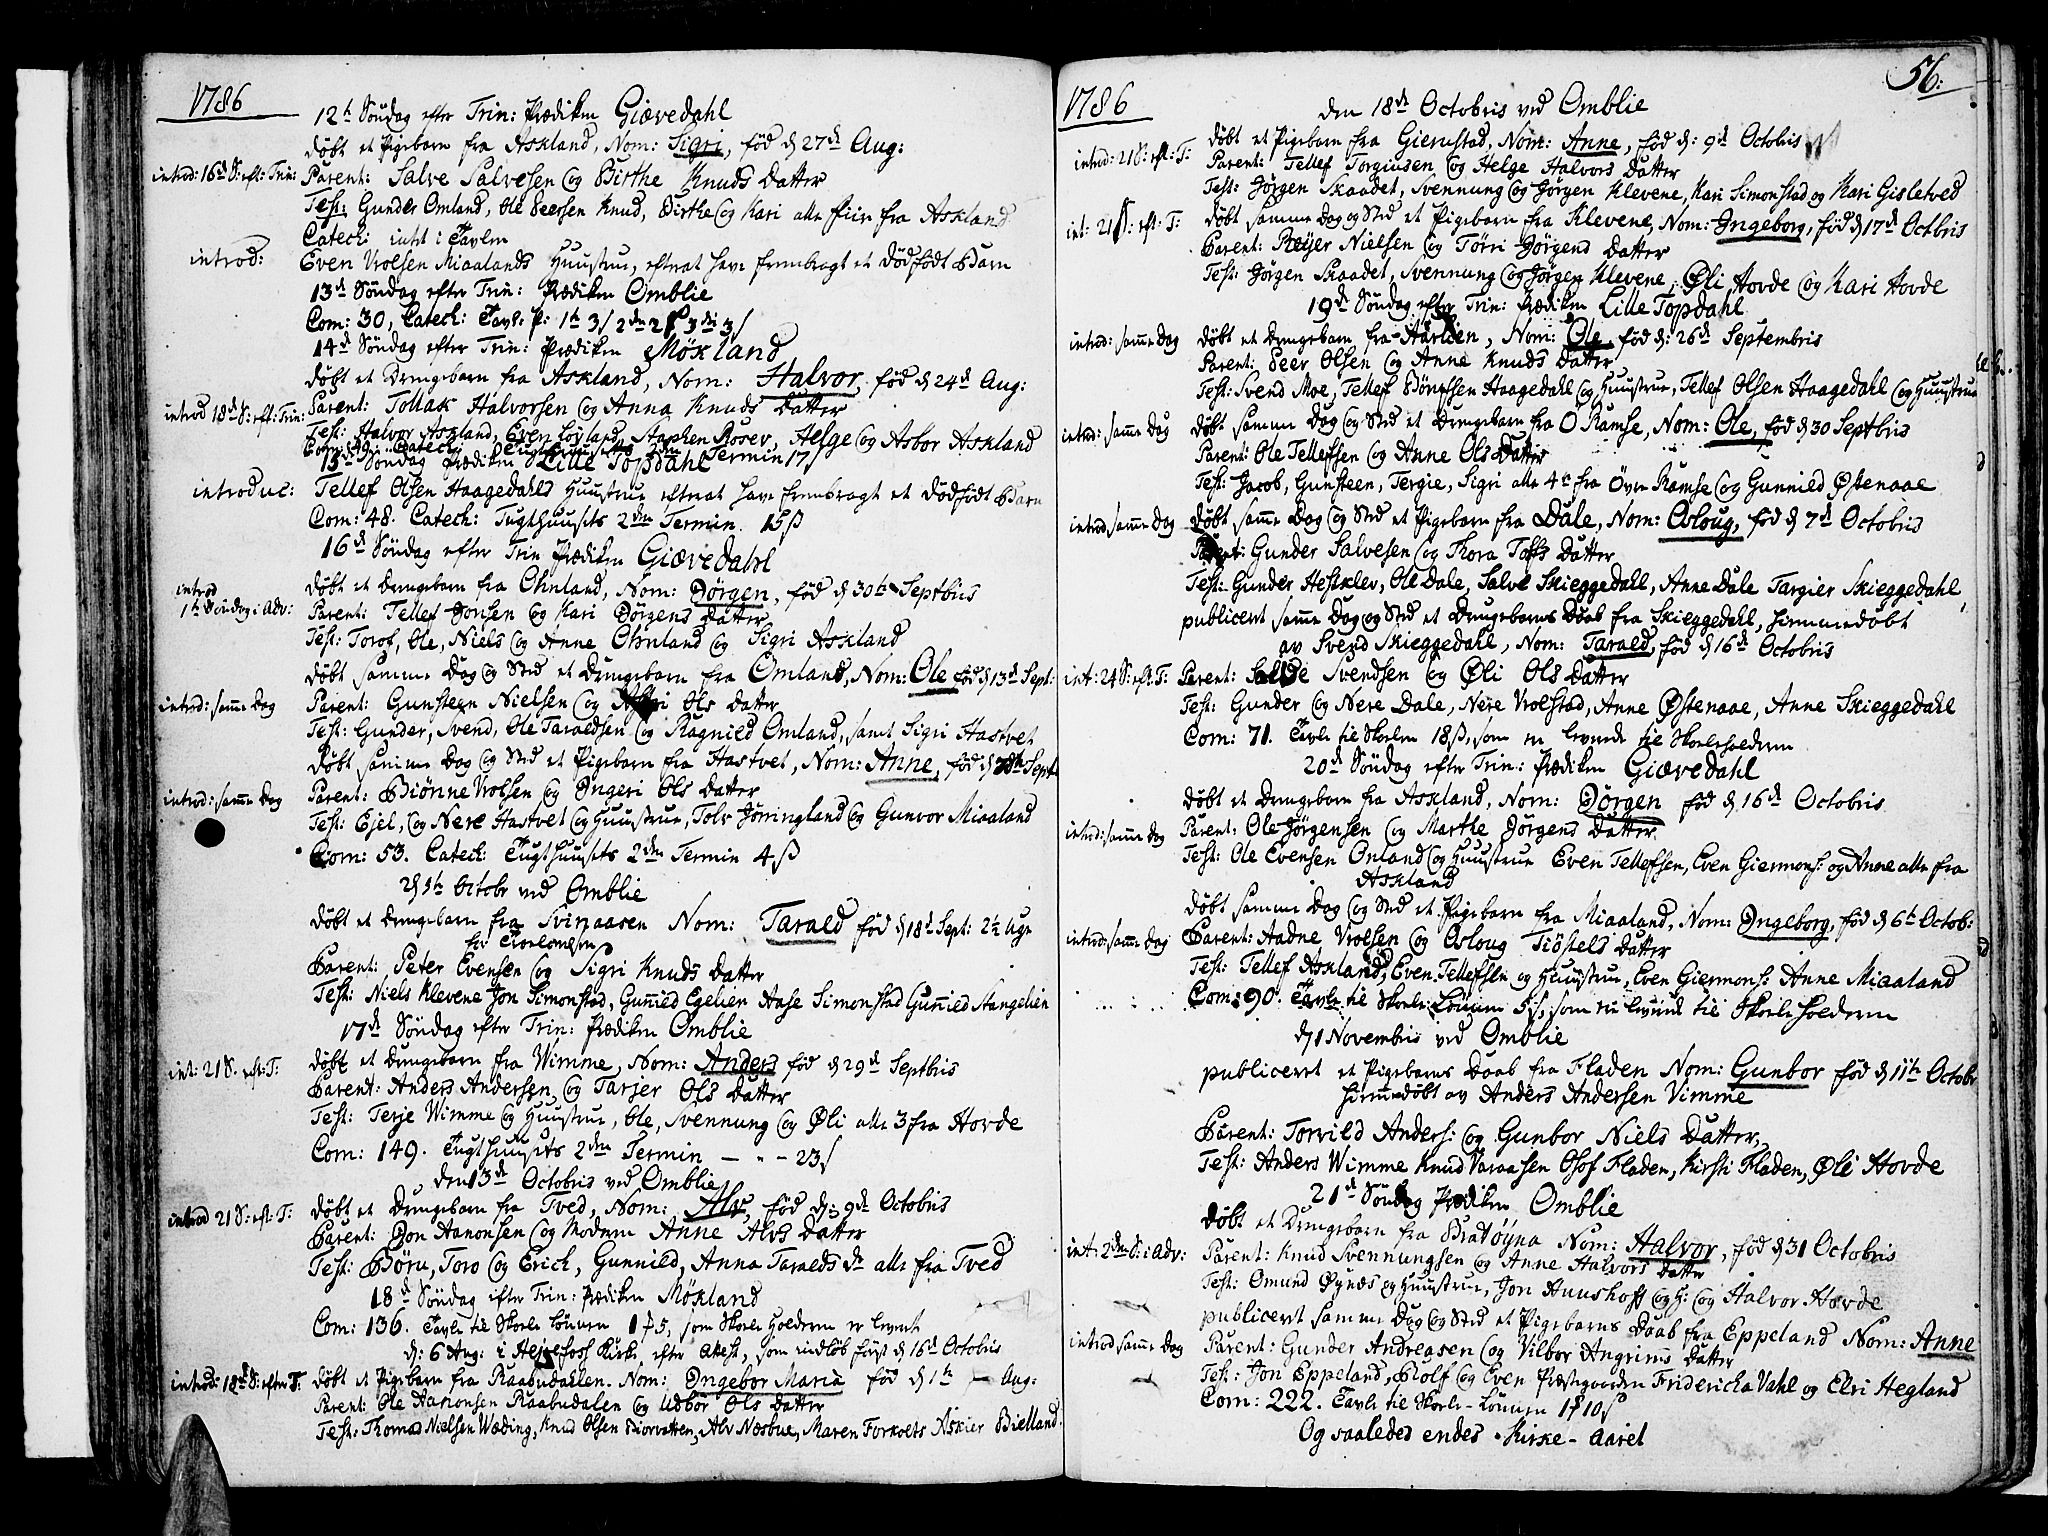 1786
12te Søndag efter Trin: Prædiken Giævedahl
døbt et Pigebarn fra Askland, Nom: Sigri, fød d 27de Aug:
introd: 16de S: eft: Trin: Parent: Salve Salvesen og Birthe Knuds Datter
Test: Gunder Omland, Ole Peersen Knud, Birthe og Kari alle fiir fra Askland
Catech: intet i Tavlen
introd: Even Vrolsen Miaalands Huustrue, efterat have frembragt et dødfødt Barn
13de Søndag efter Trin: Prædiken Omblie
Com: 30, Catech: Tavl: P: 1te 3 s 2den 2 s 3die 3 s
14de Søndag efter Trin: Prædiken Møkland
døbt et Drengebarn fra Askland, Nom: Halvor fød d 24de Aug:
introd 18de S: eft: Trin: Parent: Tollak Halvorsen og Anna Knuds Datter
Test: Halvor Askland, Even Løyland, Staphen Røsev, Helge og Asbor Askland
Com: 49. Catech: Tugthuusets 2den Termin 17 s
15de Søndag Prædiken Lille Topdahl
introduc: Tellef Olsen Haagedahls Huustrue efterat have frembragt et dødfødt Barn
Com: 48. Catech: Tugthuusets 2den Termin 15 s
16de Søndag efter Trin Prædiken Giævedahl
introd 1te Søndag i Adv: døbt et Drengebarn fra Ohnland, Nom: Jørgen, fød d 30te Septbris
Parent: Tellef Jonsen og Kari Jørgens Datter
Test: Torof, Ole, Niels og Anne Ohnland og Sigri Askland
døbt samme Dag og Sted et Drengebarn fra Omland, Nom: Ole fød d 13de Sept:
introd: samme Dag Parent: Gunsteen Nielsen og Ols Datter
Test: Gunder, Svend, Ole Taraldsen og Ragnild Omland, samt Sigri Hastvet
døbt samme Dag og Sted et Pigebarn fra Hastvet, Nom: Anne, fød d Sept
introd: samme Dag Parent: Biønne Vrolsen og Ingeri Ols Datter
Test: Ejel, og Nere Hastvet og Huustrue, Tolv Jørringland og Gunvor Miaaland
Com: 53. Catech: Tugthuusets 2den Termin 4 s
d 5te Octobr ved Omblie
døbt et Drengebarn fra Svirpaasen Nom: Tarald fød d 18d Sept: 2½ Uge
for Forlovelsen
Parent: Peter Evensen og Sigri Knuds Datter
Test: Niels Klevene Jon Simonstad, Gunnied Egelien Aase Simonstad Gunnied Stangelien
17de Søndag efter Trin: Prædiken Omblie
int: 21 S. eft: T: døbt et Drengebarn fra Wimme, Nom: Anders fød d 29de Septbris
Parent: Anders Andersen og Tarjer Ols Datter
Test: Terje Wimme og Huustrue, Ole, Svennung og Øli alle 3 fra Hovde
Com: 149. Tugthuusets 2den Termin — " - 23 s
den 13de Octobris ved Omblie
introd 21 S: eft: T: døbt et Drengebarn fra Tved, Nom: Alv, fød d: 9de Octobris
Parent: Jon Aanonsen og Moderen Anne Alvs Datter
Test: Børu, Toro og Erich, Gunnild, Anna Taralds Dr alle fra Tved
18de Søndag efter Trin: Prædiken Møkland
Com: 136. Tavle til Skole Lønnen 1 # 5, som Skole Holderen er levert
d: 6 Aug: i Hejrefoss Kirke, efter Attest, som indløb først d 16de Octobris
introd: 18de S: efter T: døbt et Pigebarn fra Raabudalen. Nom: Ingebor Maria fød d 1te — Aug:
Parent: Ole Aanonsen Raabudalen og Udbør Ols Datter
Test: Thomas Nielsen Wæding, Knud Olsen Biorvatten, Alv Næsbue, Maren Forkvets Askier Bielland.
1786
56:
den 18de Octobris ved Omblie
introd: 21 S: eft: T: døbt et Pigebarn fra Gierustad, Nom: Anne, fød d: 9de Octobris
Parent: Tellef Torgiusen og Helge Halvors Datter
Test: Jørgen Skaadet, Svennung og Jørgen Klevene, Kari Simonstad og Kari Gisletved
int: 21 S: eft: T: døbt samme Dag og Sted et Pigebarn fra Klevene, Nom: Ingeborg, fød d 17de Octbris
Parent: Reijer Nielsen og Tøri Jørgens Datter
Test: Jørgen Skaadet, Svennung og Jørgen Klevene, Øli Hovde og Kari Hovde
19de Søndag efter Trin: Prædiken Lille Topdahl
introd: samme Dag døbt et Drengebarn fra Harlien, Nom: Ole, fød d: 26de Septembris
Parent: Peer Olsen og Anne Knuds Datter
Test: Svend Moe, Tellef Bønnsen Haagedahl og Huustrue, Tellef Olsen Haagedahl og Huustrue
introd: samme Dag døbt samme Dag og Sted et Drengebarn fra O Ramse, Nom: Ole, fød d 30 Septbris
Parent: Ole Tellefsen og Anne Ols Datter
Test: Jacob, Gunsteen, Tergie, Sigri alle 4re fra Øvre Ramse og Gunnild Østenaae
introd: samme Dag døbt samme Dag og Sted et Pigebarn fra Dale, Nom: Osloug, fød d 7de Octobris
Parent: Gunder Salvesen og Thora Tofs Datter
Test: Gunder Hestklev, Ole Dale, Salve Skieggedahl, Anne Dale Targier Skieggedahl,
publicert samme Dag og Sted et Drengebarns Daab fra Skieggedahl, hiemmedøbt
av Svend Skieggedahl, Nom: Tarald, fød d 16de Octobris
int: 24 S: eft: T: Parent: Salve Svendsen og Øli Ols Datter
Test: Gunder og Nere Dale, Nere Vrolstad, Anne Østenaae, Anne Skieggedahl
Com: 71. Tavle til Skolen 18 s, som er leverede til Skoleholderen
20de Søndag efter Trin: Prædiken Giævedahl
døbt et Drengebarn fra Askland, Nom: Jørgen fød d 16de Octobris
introd: samme Dag Parent: Ole Jørgensen og Marthe Jørgens Datter
Test: Ole Evensen Onland og Huustrue Even Tellefsen, Even Giermons: og Anne alle fra
Askland
døbt samme Dag og Sted et Pigebarn fra Miaaland, Nom: Ingeborg, fød d 6te Octob:
introd: samme Dag Parent: Aadne Vrolsen og Osloug Tiøstels Datter
Test: Tellef Askland, Even Tellefsen og Huustrue, Even Giermons: Anne Miaaland
Com: 90. Tavle til Skole Lønnen 5 s, som er leverit til Skoleholderen
d 1 Novembris ved Omblie
publiceret et Pigebarns Daab fra Fladen Nom: Gunbor fød d 11te Octobr
hiemmedøbt av Anders Andersen Vimme
Parent: Torvild Anders: og Gunbor Niels Datter,
Test: Anders Wimme Knud Varaasen Osof Fladen, Kirsti Fladen, Øli Hovde
21de Søndag Prædiken Omblie
døbt et Drengebarn fra Bratøyna Nom: Halvor, fød d 31 Octobris
int: 2den S: i Adv: Parent: Knud Svennungsen og Anne Halvors Datter
Test: Omund Øynæs og Huustrue, Jon Huushoff og H: og Halvor Hovde
publicert samme Dag og Sted et Pigebarns Daab fra Eppeland Nom: Anne
introd samme Dag Parent: Gunder Andreasen og Vilbor Angrims Datter
Test: Jon Eppeland, Rolf og Even Præstegaarden Fridericka Vahl og Elri Hegland
Com: 222. Tavle til Skole-Lønnen 1 # 10 s
Og saaledes endes Kirke-Aaret